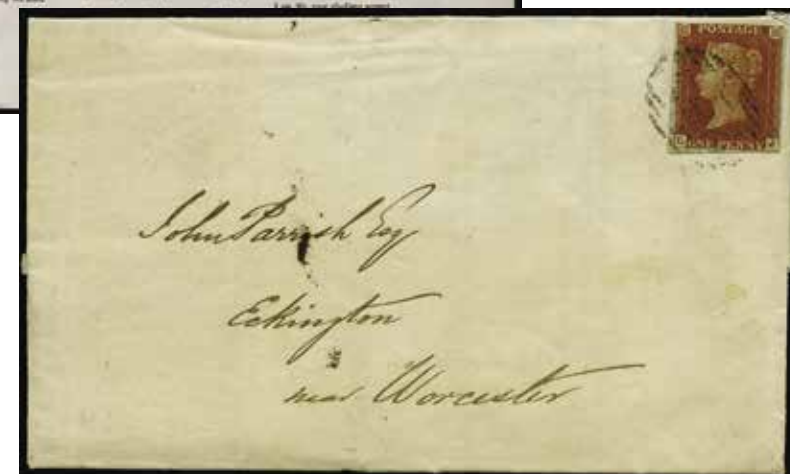 POSTAGE
ONE PENNY
John Parrish Esq
Eckington
near Worcester